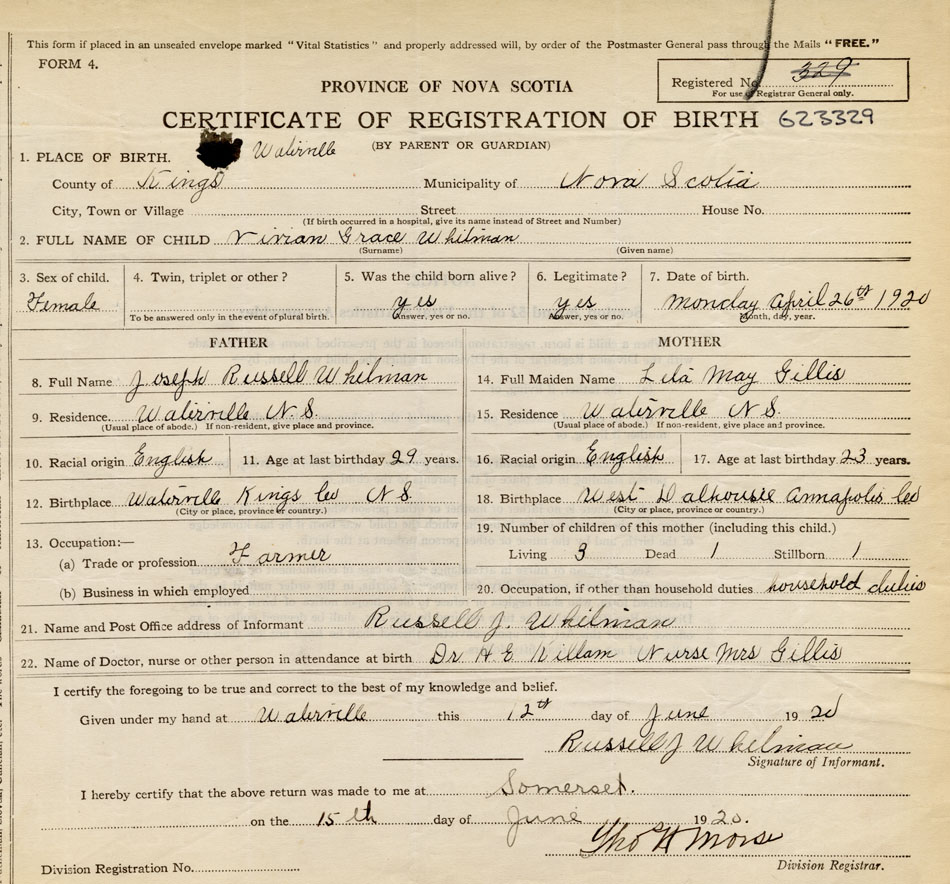 This form if placed in an unsealed envelope marked "Vital Statistics" and properly addressed will, by order of the Postmaster General pass through the Mails "FREE."
FORM 4.
Registered No. 329
For use of Registrar General only.
PROVINCE OF NOVA SCOTIA
CERTIFICATE OF REGISTRATION OF BIRTH 623329
(BY PARENT OR GUARDIAN)
1. PLACE OF BIRTH. Waterville
County of Kings Municipality of Nova Scotia
City, Town or Village Street House No.
(If birth occurred in a hospital, give its name instead of Street and Number)
2. FULL NAME OF CHILD Vivian Grace Whitman
(Surname) (Given name)
3. Sex of child. 4. Twin, triplet or other? 5. Was the child born alive? 6. Legitimate? 7. Date of birth.
Female yes yes Monday April 26th 1920
To be answered only in the event of plural birth. Answer, yes or no. Answer, yes or no. Month, day, year.
FATHER MOTHER
8. Full Name Joseph Russell Whitman 14. Full Maiden Name Lila May Gillis
9. Residence. Waterville N.S. 15. Residence Waterville N S.
(Usual place of abode.) If non-resident, give place and province. (Usual place of abode.) If non-resident, give place and province.
10. Racial origin English 11. Age at last birthday 29 years. 16. Racial origin English 17. Age at last birthday 23 years.
12. Birthplace Waterville Kings Co N S. 18. Birthplace West Dalhousie Annapolis Co
(City or place, province or country.) (City or place, province or country.)
13. Occupation:— 19. Number of children of this mother (including this child.)
(a) Trade or profession Farmer Living 3 Dead 1 Stillborn 1
(b) Business in which employed 20. Occupation, if other than household duties household duties
21. Name and Post Office address of Informant Russell J. Whitman
22. Name of Doctor, nurse or other person in attendance at birth Dr H E Killam Nurse Mrs Gillis
I certify the foregoing to be true and correct to the best of my knowledge and belief.
Given under my hand at Waterville this 12th day of June 1920
Russell J Whitman
Signature of Informant.
I hereby certify that the above return was made to me at Somerset.
on the 15th day of June 1920.
Tho H Morse
Division Registrar.
Division Registration No.